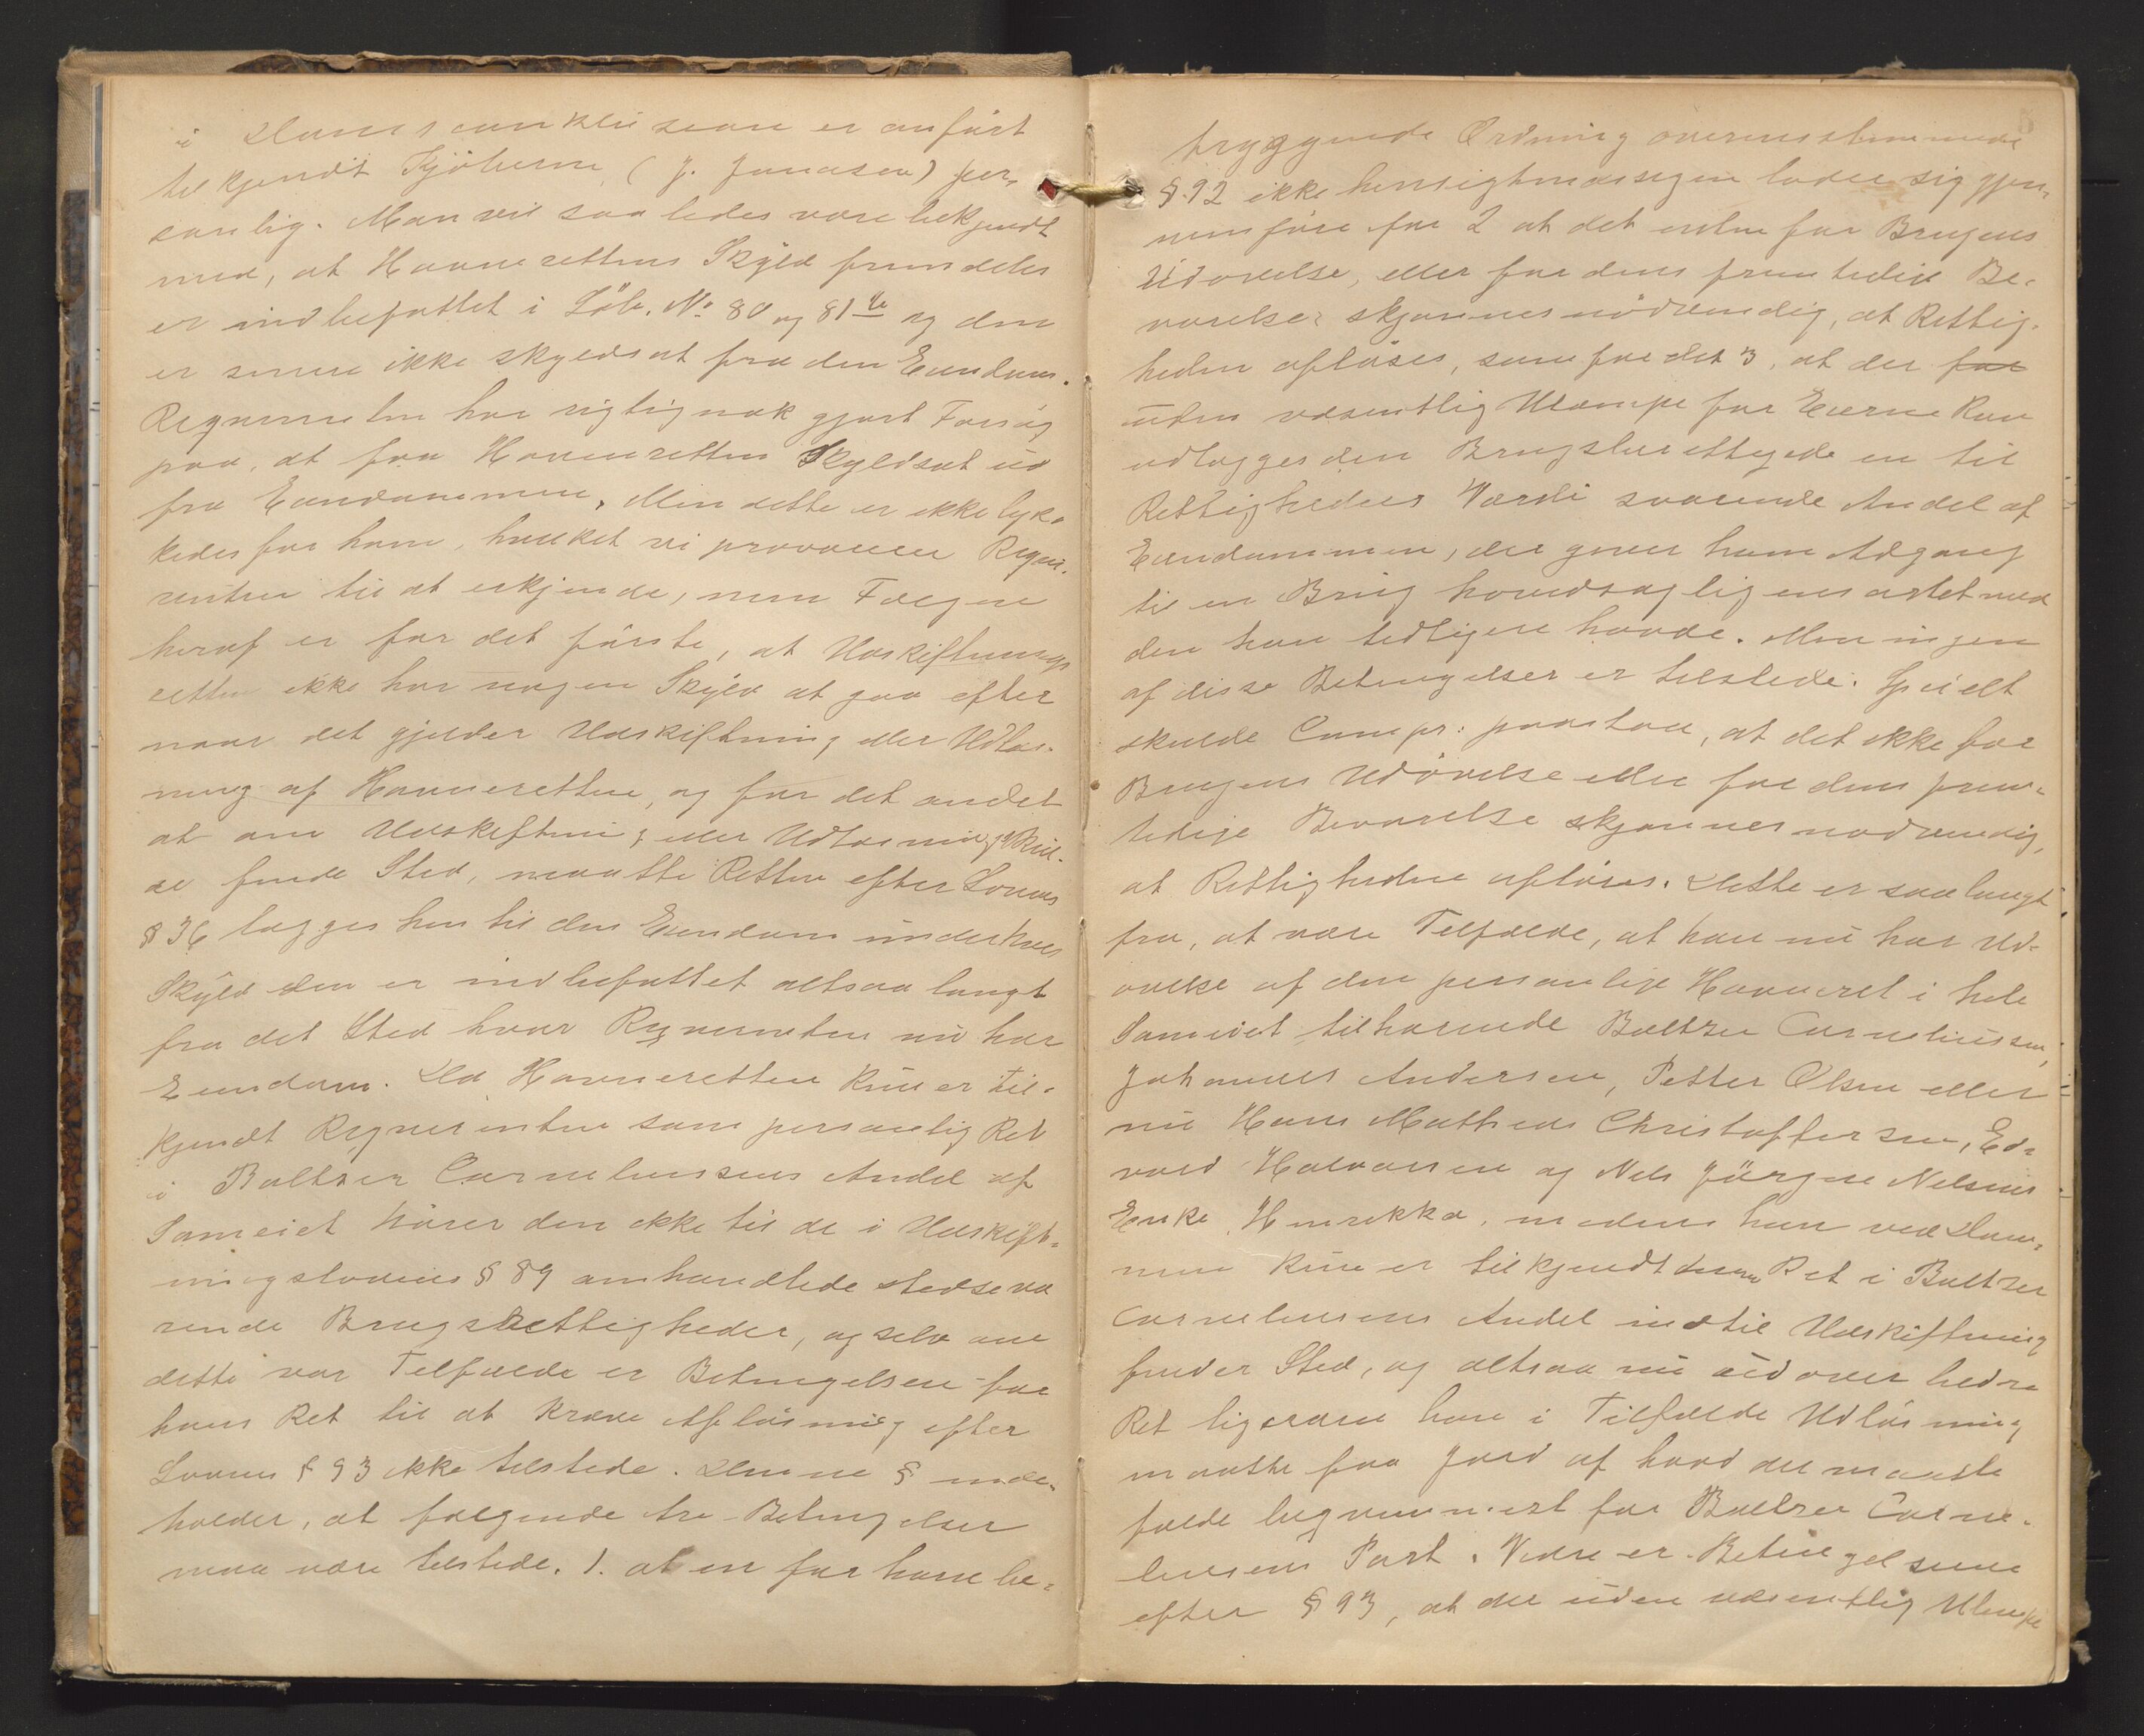 i Domsconklusionen er anført
tilkjendt Kjøberne (J. Jonassen) per-
sonlig. Man vil saaledes være bekjendt
med, at Havnerettens Skyld fremdeles
er indbefattet i Løb. No 80 og 81 b og den
er senere ikke skyldsat fra den Eiendom.
Reqvirenten har rigtignok gjort Forsøg
paa, at faa Havneretten Skyldsat ud
fra Eiendommen, Men dette er ikke lyk-
kedes for ham, hvilket vi provocerer Reqvi-
renten til at erkjende, men Følgen
heraf er for det første, at Udskiftnings
retten ikke har nogen Skyld at gaa efter
naar det gjelder Udskiftning eller Udløs-
ning af Havneretten, og for det andet
at om Udskiftning eller Udløsning skul-
de finde Sted, maatte Retten efter Lovens
§ 36 lægges hen til den Eiendom under hvis
Skyld den er indbefattet altsaa langt
fra det Sted hvor Reqvirenten nu har
Eiendom. Da Havneretten kun er til-
kjendt Reqvirenten som personlig Ret
i Baltzer Corneliussens Andel af
Sameiet hører den ikke til de i Udskift-
ningslovens § 89 omhandlede stedseva
rende Brugsrettigheder, og selv om
dette var Tilfælde er Betingelsen for
hans Ret til at kræve Afløsning efter
Lovens § 93 ikke tilstede. Denne § inde-
holder, at følgende tre Betingelser
maa være tilstede. 1. at en for ham be-
tryggende Ordning overensstemmende
§ 92 ikke hensigtmæssigen lader sig gjen-
nemføre for 2 at det enten for Brugens
Udøvelse, eller for dens fremtidige Be-
varelse skjønnes nødvendig, at Rettig-
heden afløses, som for det 3, at der for
uden væsentlig Ulæmpe for Eierne kan
udlægges den Brugsberettigede en til
Rettighedens Værdi svarende Andel af
Eiendommen, der giver ham Adgang
til en Brug hovedsaglig ensartet med
den han tidligere havde. Men ingen
af disse Betingelser er tilstede. Specielt
skulde Compr: paastaa, at det ikke for
Brugens Udøvelse eller for dens frem-
tidige Bevarelse skjønnes nødvendig,
at Rettigheden afløses. Dette er saa langt
fra, at være Tilfælde, at han nu har Ud-
øvelse af den personlige Havneret i hele
Sameiet tilhørende Baltzer Corneliussen,
Johannes Andersen, Petter Olsen eller
nu Hans Mathias Christoffersen, Ed-
vard Halvorsen og Nils Jørgen Nilsens
Enke, Henrikka, medens han ved Dom-
men kun er tilkjendt denne Ret i Baltzer
Corneliussens Andel indtil Udskiftning
finder Sted, og altsaa nu udøver bedre
Ret ligesom han i Tilfælde Udløsning
maatte faa Jord af hvad der maatte
falde begrænset for Baltzer Corne-
liussens Part. Videre er Betingelserne
efter § 93, at der uden væsentlig Ulempe